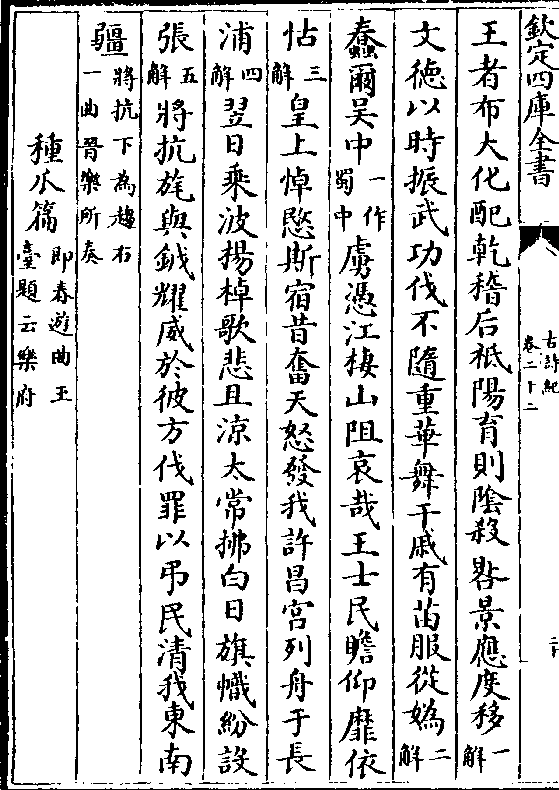 欽定四庫全書
古詩紀
卷二十二
二十
王者布大化配乾稽后祗陽育則陰殺晷景應度移一解
文德以時振武功伐不隨重華舞干戚有苗服從媯二解
蠢爾吳中一作蜀中虜憑江棲山阻哀哉王士民瞻仰靡依
怙三解皇上悼愍斯宿昔奮天怒發我許昌宮列舟于長
浦四解翌日乘波揚棹歌悲且涼太常拂白日旗幟紛設
張五解將抗旄與鉞耀威於彼方伐罪以弔民清我東南
疆將抗下為趨右一曲晉樂所奏
種瓜篇即春遊曲王臺題云樂府